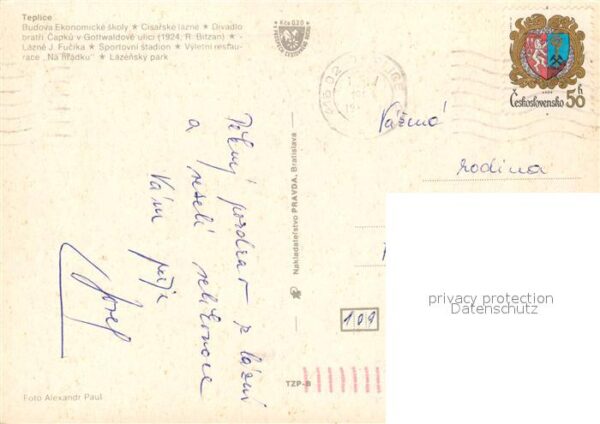 Teplice
Budova Ekonomické školy ★ Císařské lázně ★ Divadlo
bratří Čapků v Gottwaldově ulici (1924, R. Bitzan) ★
Lázně J. Fučíka ★ Sportovní stadion ★ Výletní restau-
race „Na hrádku" ★ Lázeňský park
Kčs 0,20
Československo 50 h
416 02
Vážená
rodina
Pěkný pozdrav z lázní
a veselé velikonoce
Vám přeje
Josef
Nakladateľstvo PRAVDA, Bratislava
109
TZP-B
Foto Alexandr Paul
privacy protection
Datenschutz